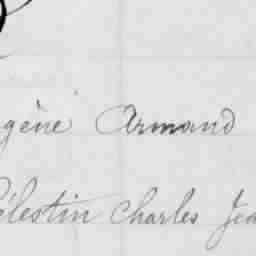 gène Armand
élestin Charles Jea